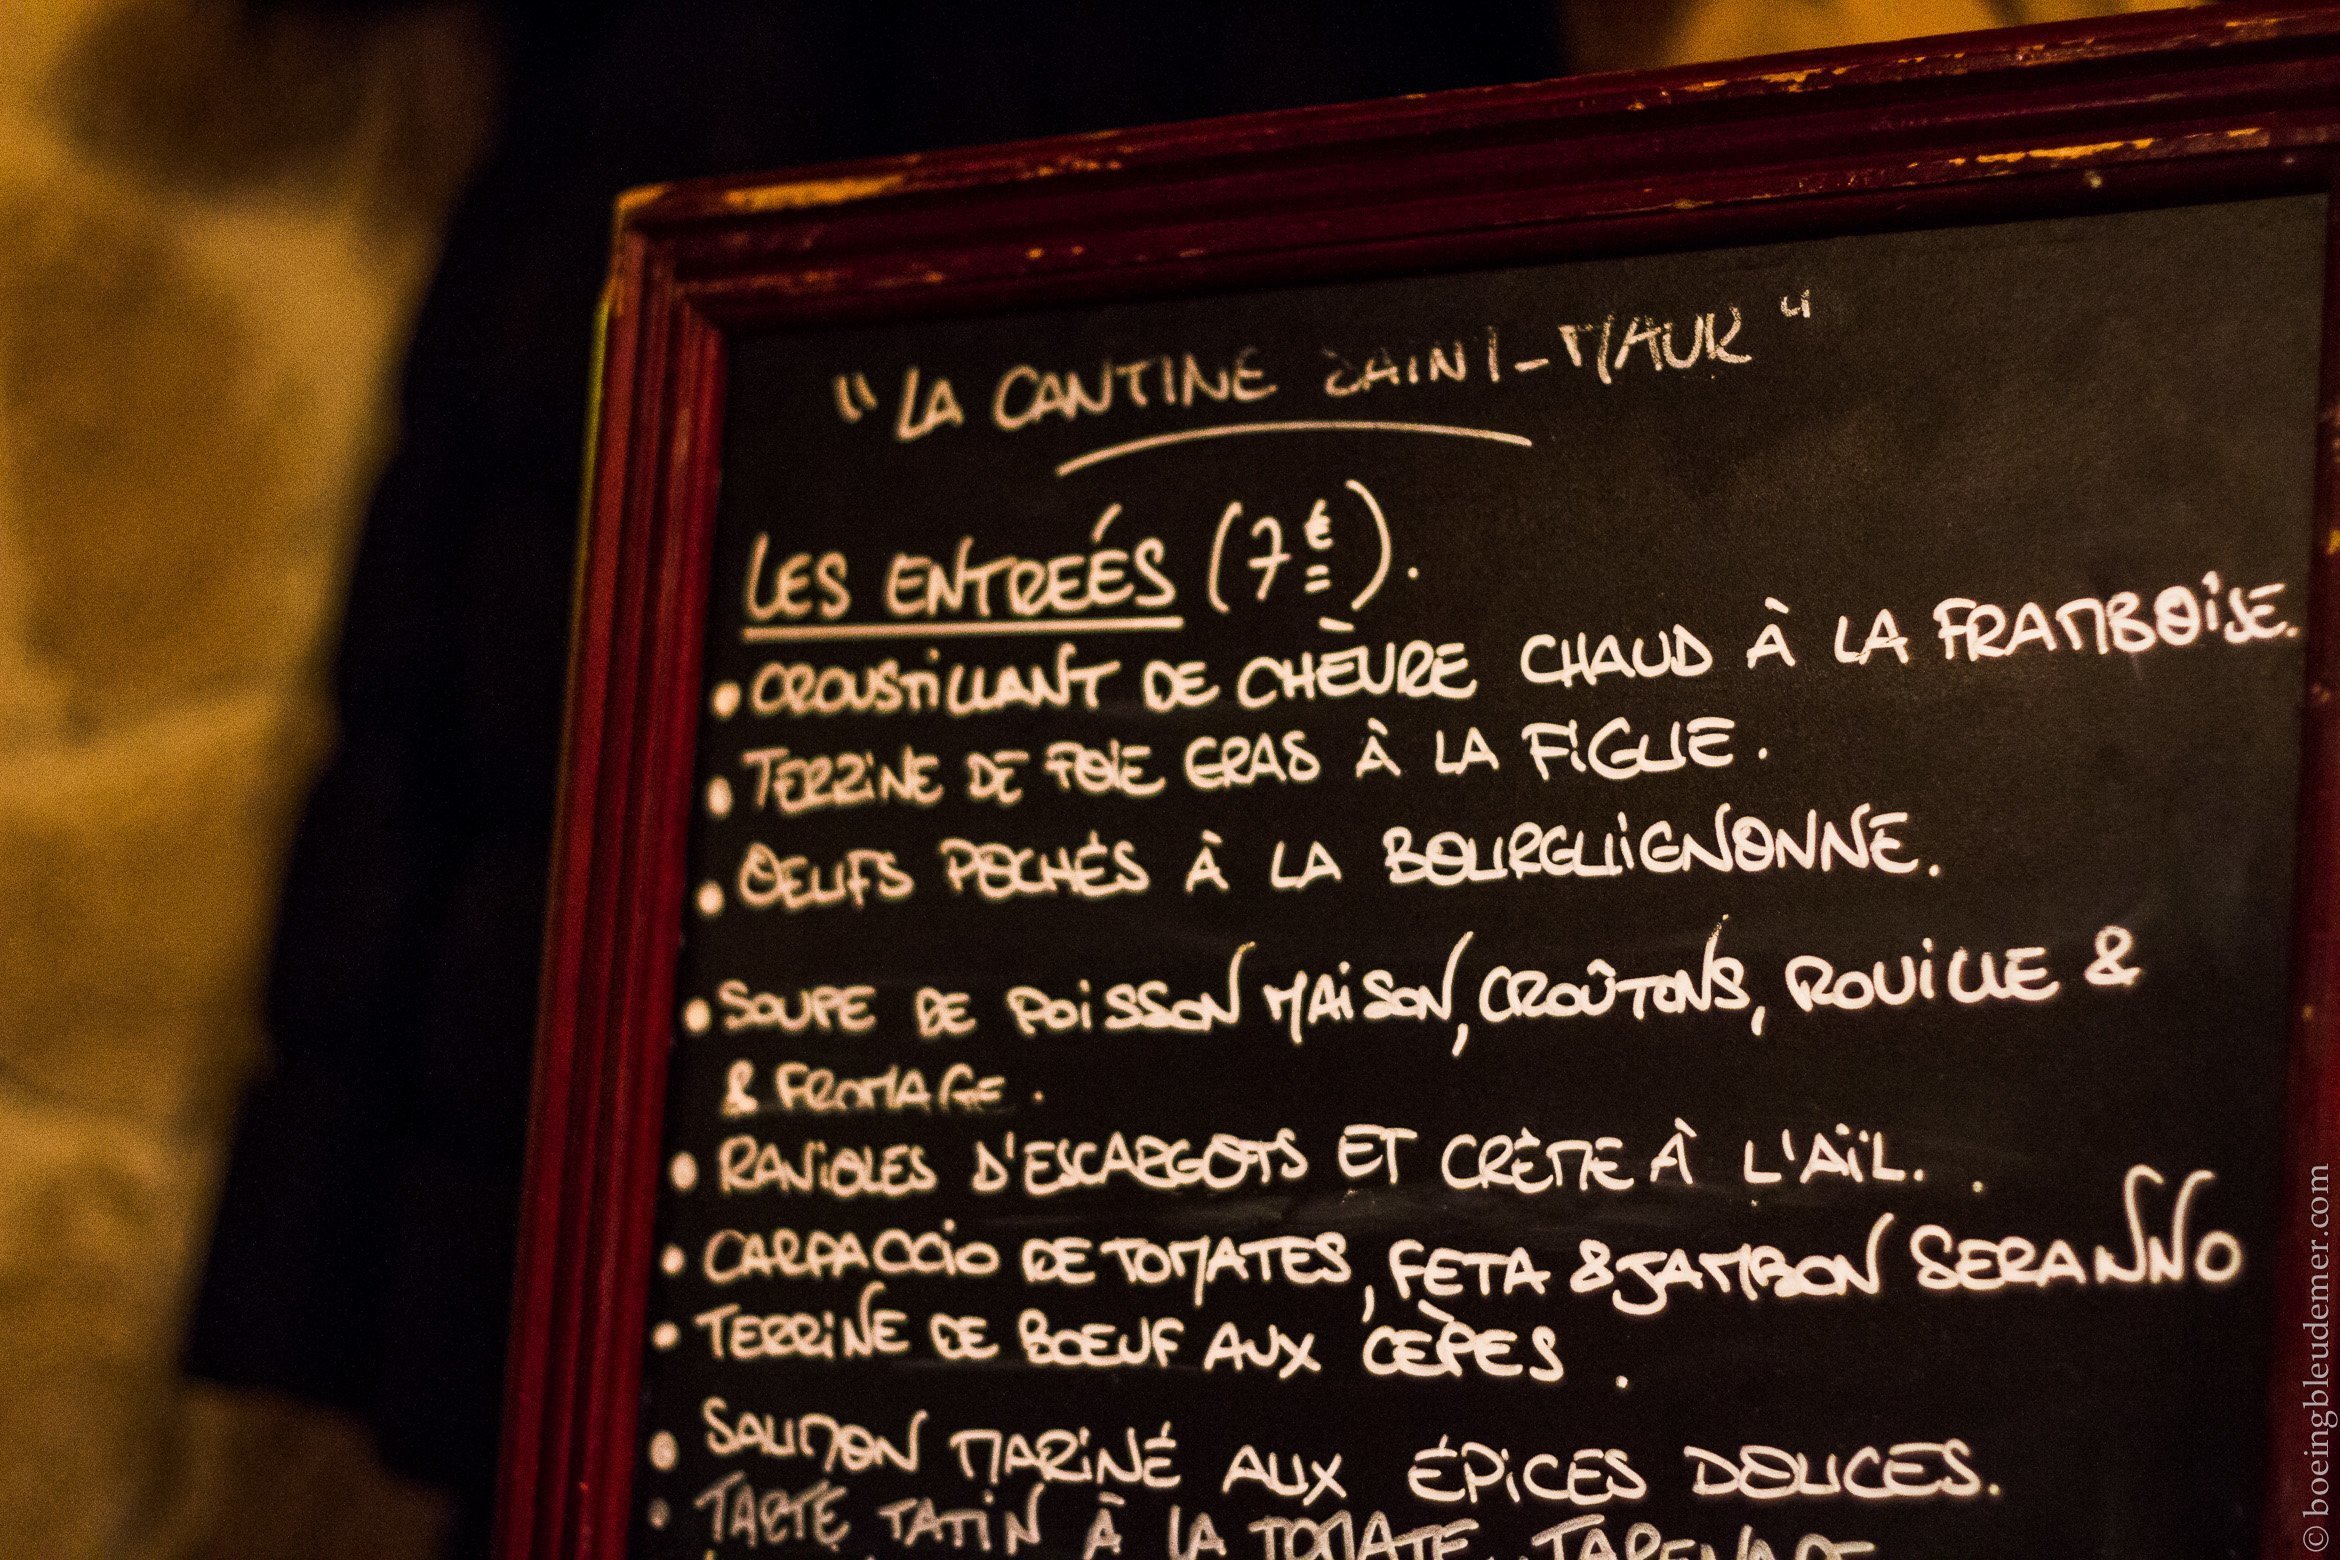 "LA CANTINE SAINT-MAUR"
LES ENTREÉS (7€).
• CROUSTILLANT DE CHÈVRE CHAUD À LA FRAMBOISE.
• TERRINE DE FOIE GRAS À LA FIGUE.
• OEUFS POCHÉS À LA BOURGUIGNONNE.
• SOUPE DE POISSON MAISON, CROÛTONS, ROUILLE &
& FROMAGE.
• RAVIOLES D'ESCARGOTS ET CRÈME À L'AÏL. .
• CARPACCIO DE TOMATES, FETA & JAMBON SERANNO
• TERRINE DE BOEUF AUX CÈPES.
• SAUMON MARINÉ AUX ÉPICES DOUCES.
• TARTE TATIN À LA TOMATE, TAPENADE
© boeingbleudemer.com